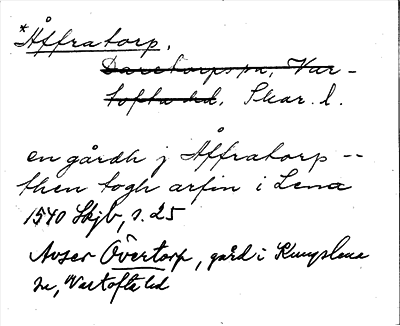 *Åffratorp.
Daretorps sn, Var-
tofta hd, Skar. l.
en gårdh j Åffratorp --
then togh arfin i Lena
1540 Skjb, s. 25
Avser Övertorp, gård i Kungslena
sn, Vartofta hd